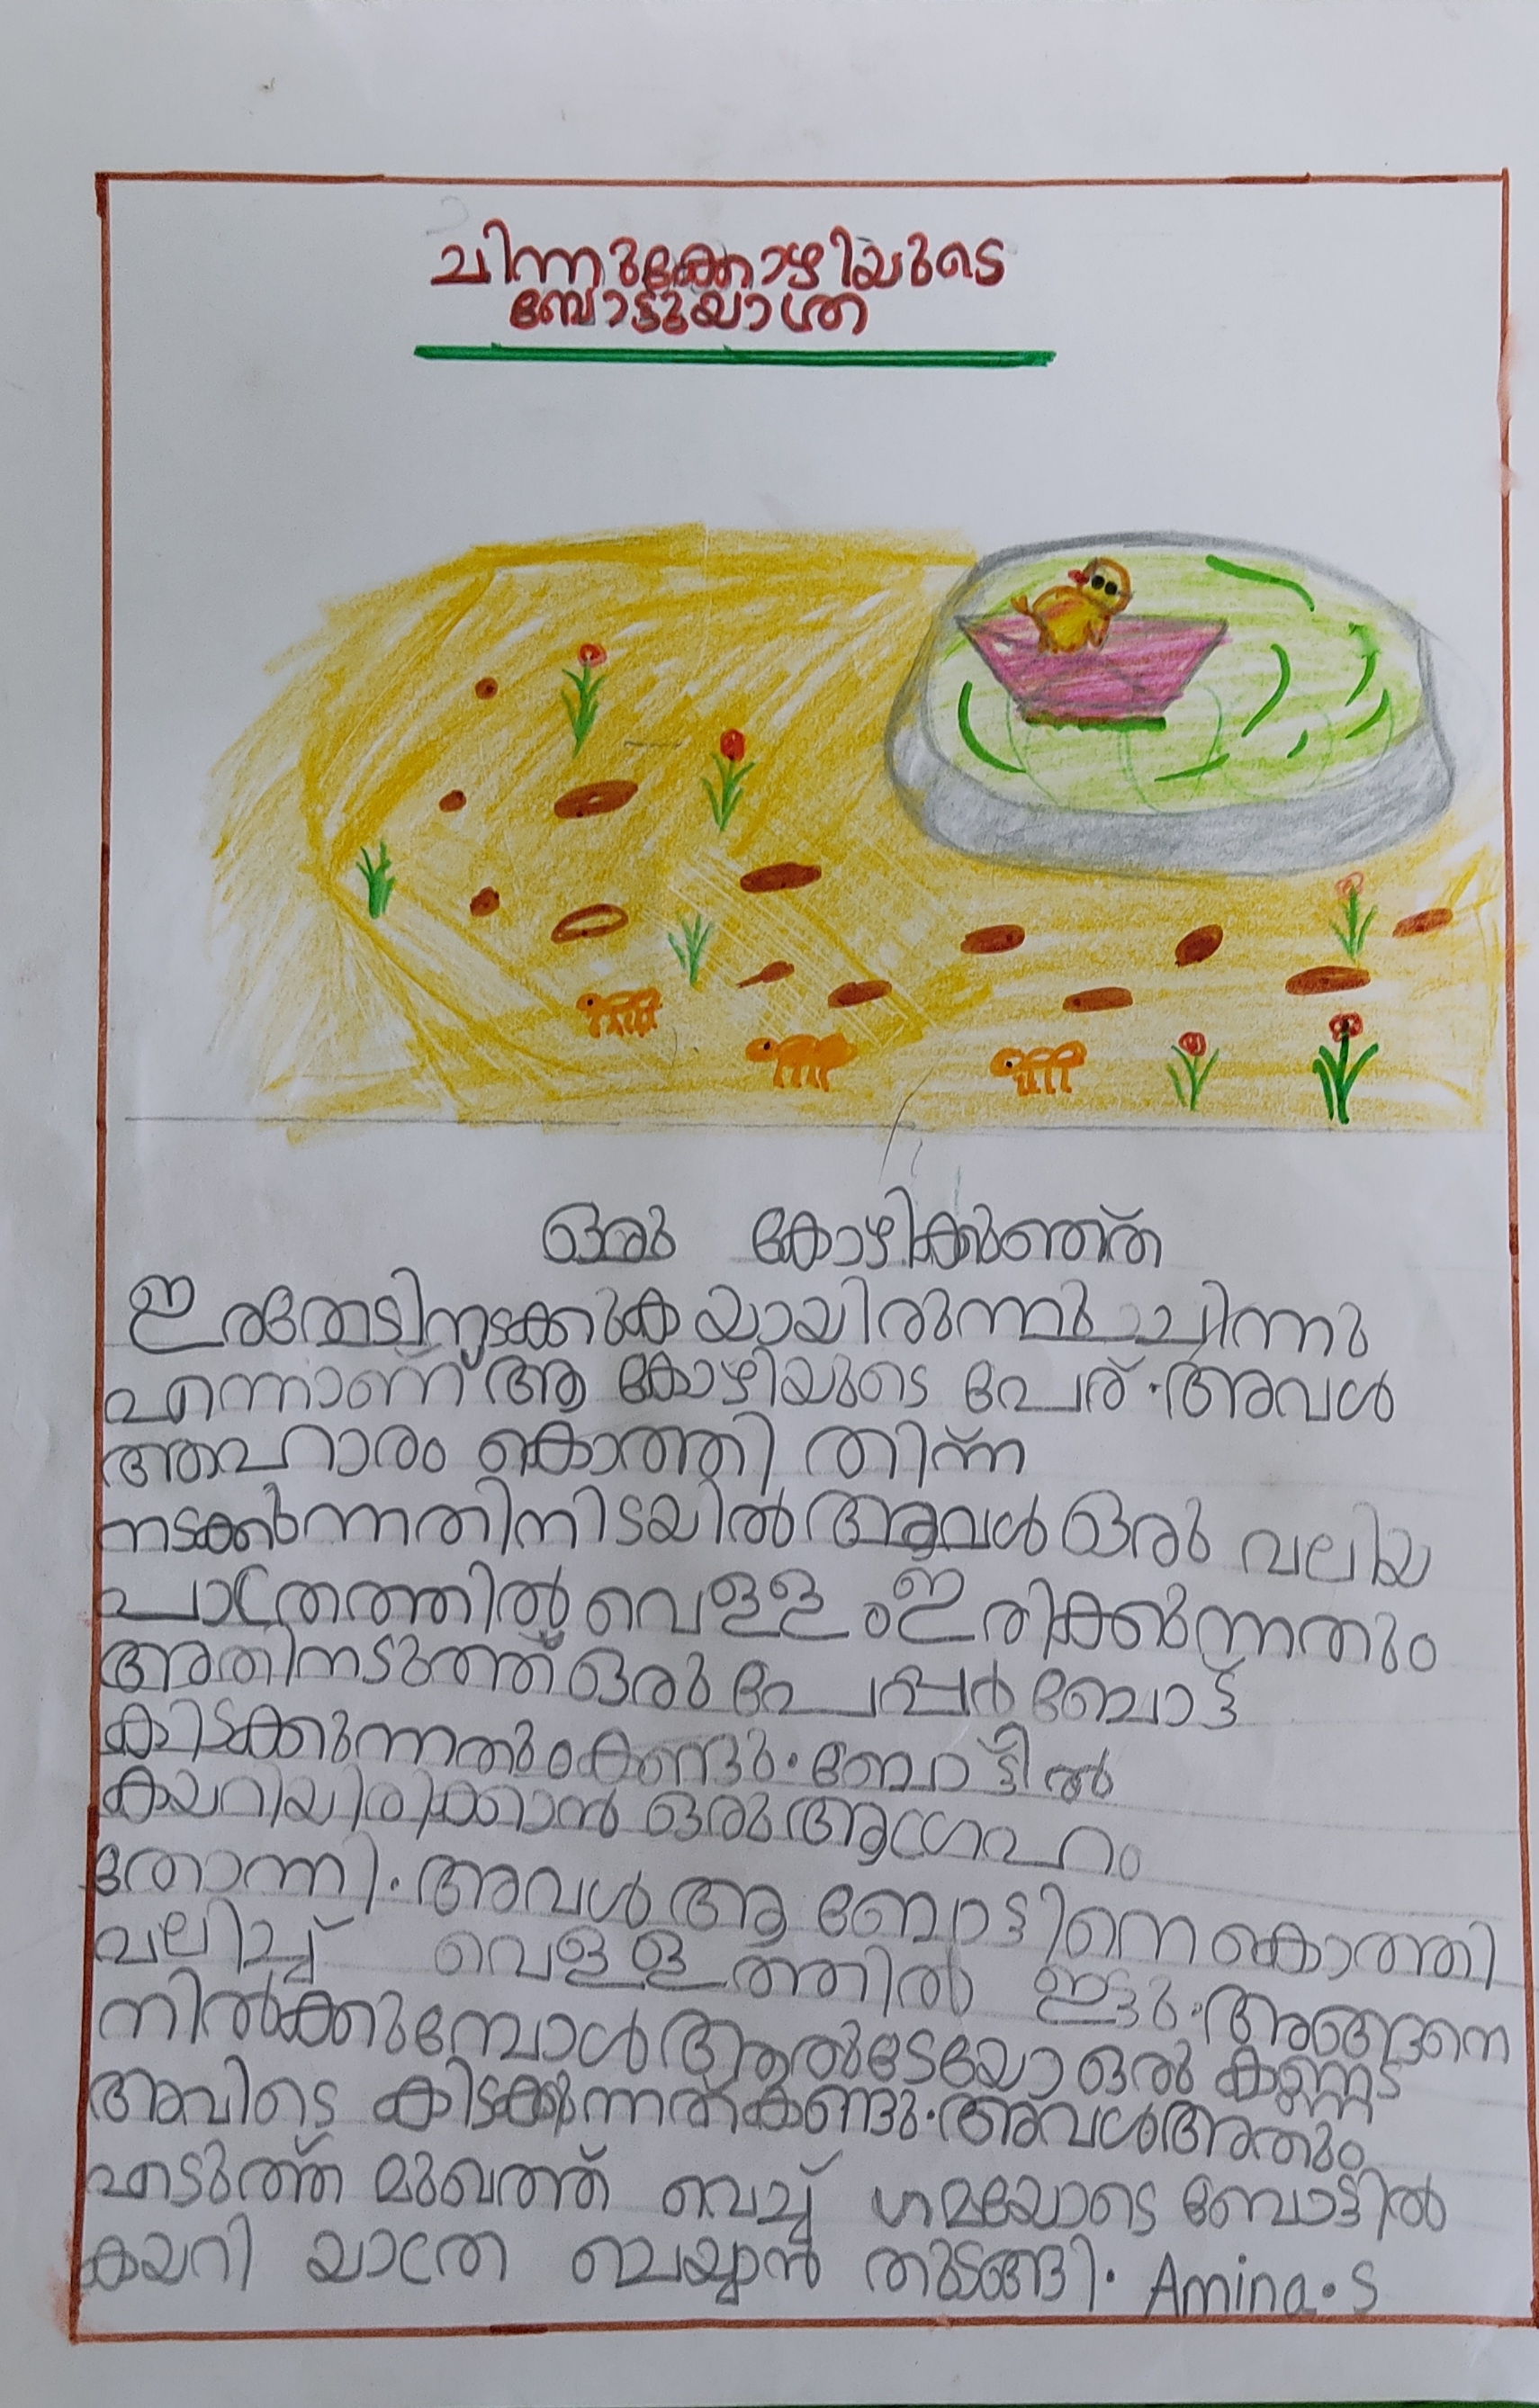 ചിന്നുക്കോഴിയുടെ
ബോട്ടുയാത്ര
ഒരു കോഴിക്കുഞ്ഞ്
ഇരതേടിനടക്കുകയായിരുന്നു ചിന്നു
എന്നാണ് ആ കോഴിയുടെ പേര്. അവൾ
ആഹാരം കൊത്തി തിന്ന്
നടക്കുന്നതിനിടയിൽ അവൾ ഒരു വലിയ
പാത്രത്തിൽ വെള്ളം ഇരിക്കുന്നതും
അതിനടുത്ത് ഒരു പേപ്പർ ബോട്ട്
കിടക്കുന്നതും കണ്ടു. ബോട്ടിൽ
കയറിയിരിക്കാൻ ഒരു ആഗ്രഹം
തോന്നി. അവൾ ആ ബോട്ടിനെ കൊത്തി
വലിച്ച് വെള്ളത്തിൽ ഇട്ടു. അങ്ങനെ
നിൽക്കുമ്പോൾ ആരുടേയോ ഒരു കണ്ണട
അവിടെ കിടക്കുന്നത് കണ്ടു. അവൾ അതും
എടുത്ത് മുഖത്ത് വെച്ച് ഗമയോടെ ബോട്ടിൽ
കയറി യാത്ര ചെയ്യാൻ തുടങ്ങി. Amina.S